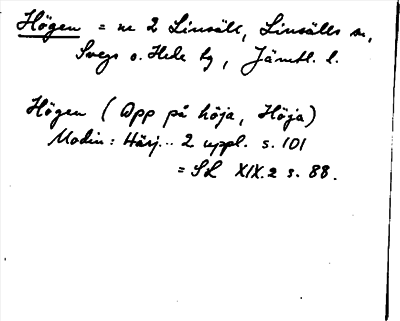 Högen = nr 2 Linsäll, Linsälls sn,
Svegs o. Hede tg, Jämtl. l.
Högen (Opp på höja, Höja)
Modin: Härj... 2 uppl. s. 101
= SL XIX.2 s. 88.